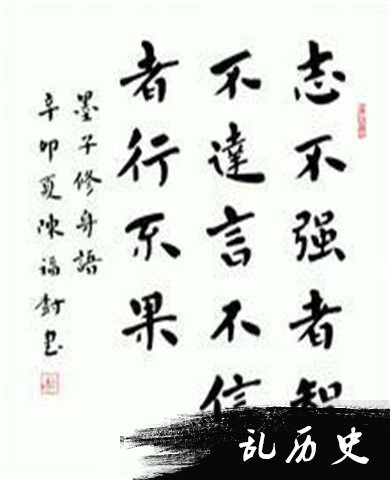 志不强者智
不達言不信
者行不果
墨子修身語
辛卯夏陳福書
乱历史